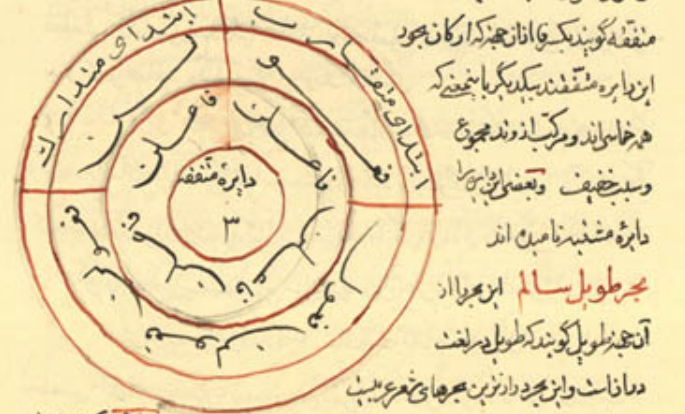 متفقه گویند یکسر قاف از آن جهة که ارکان بحور
این دایره متفقند بیکدیگر باینمعنی که
همه خماسی‌اند و مرکب از وتد مجموع
و سبب خفیف و بعضی این دایره را
دایرهٔ مشتبه نامیده اند
بحر طویل سالم این بحر را از
آن جهة طویل گویند که طویل در لغت
دراز است و این بحر درازترین بحرهای شعر عربیست
ابتدای متقارب
ابتدای متدارک
فعولن
فاعلن
فاعلن
فاعلن
فاعلن
فعولن
فعولن
فعولن
دایرهٔ متفقه
۳